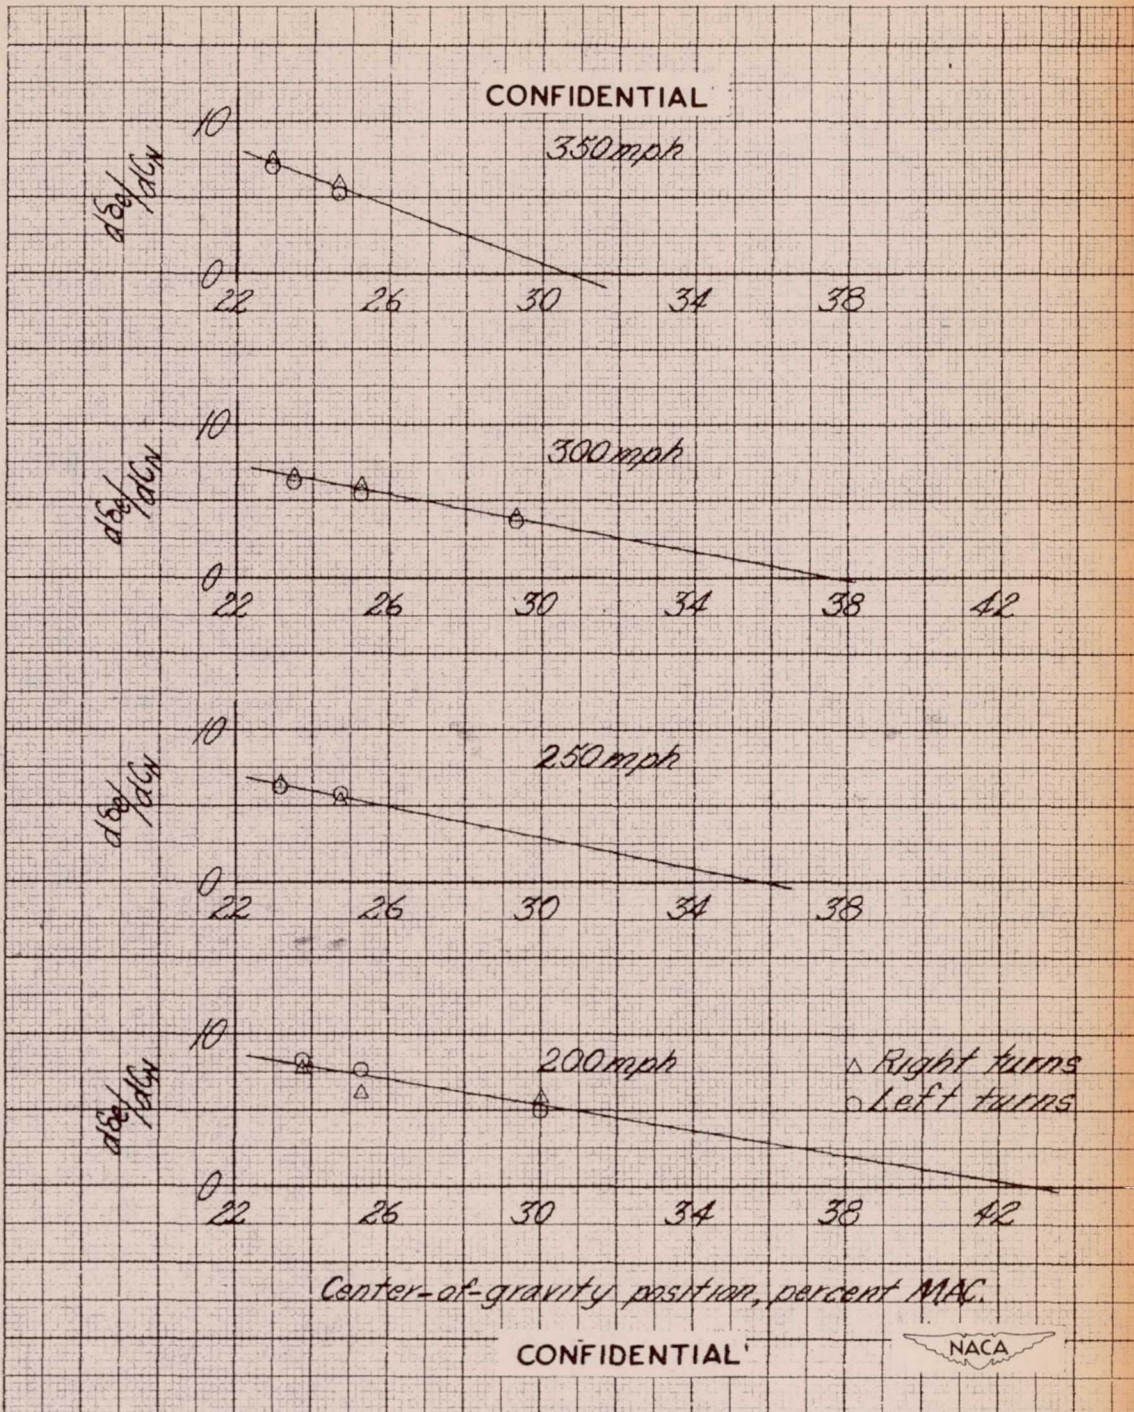 CONFIDENTIAL
10
350mph
dδe/dCN
0
22 26 30 34 38
10
300mph
dδe/dCN
0
22 26 30 34 38 42
10
250mph
dδe/dCN
0
22 26 30 34 38
10
200mph
△ Right turns
○ Left turns
dδe/dCN
0
22 26 30 34 38 42
Center-of-gravity position, percent M.A.C.
CONFIDENTIAL
NACA